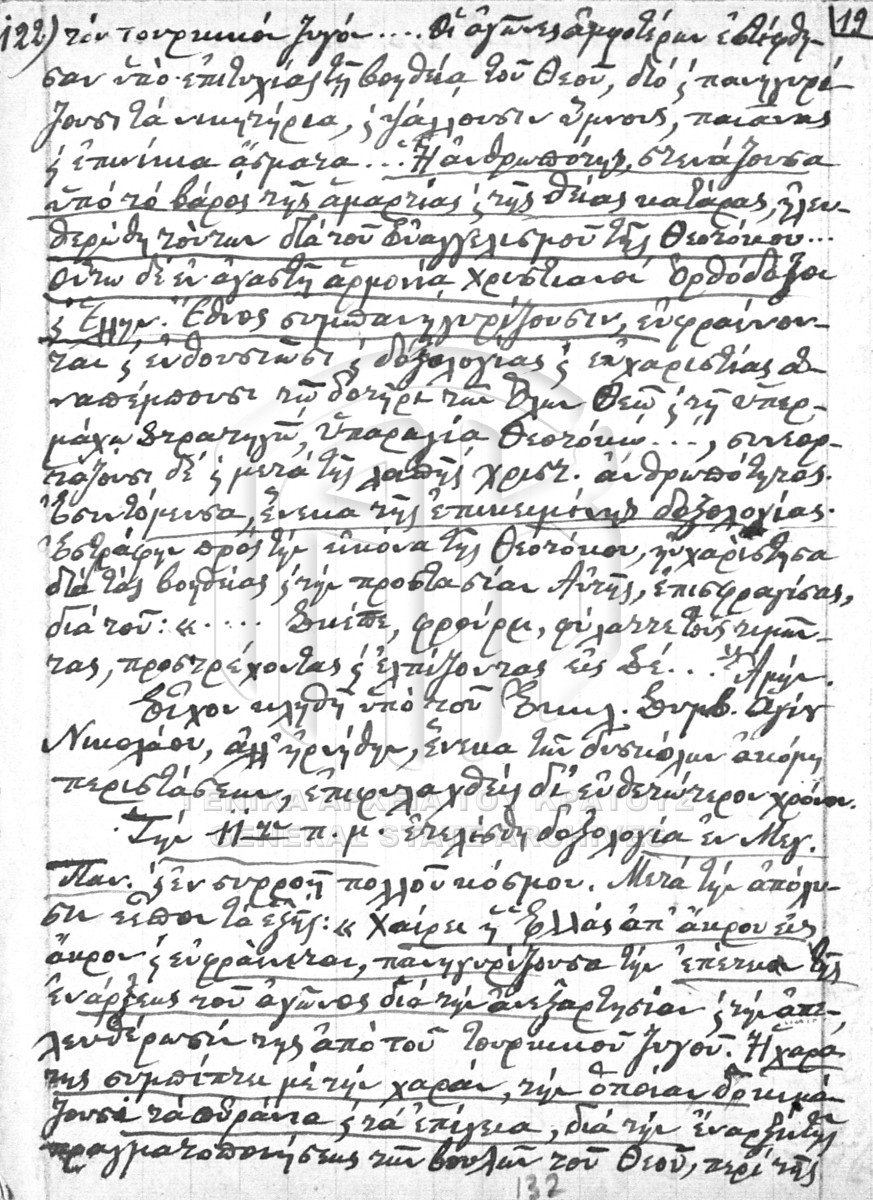 122) τόν τουρκικόν ζυγόν.... Οἱ ἀγῶνες ἀμφοτέρων ἐστέφθη- 19
σαν ὑπό ἐπιτυχίας τῇ βοηθείᾳ τοῦ Θεοῦ, διό ς πανηγυρί
ζουσι τά νικητήρια, ς ψάλλουσιν ὕμνους, παιᾶνας
ς ἐπινίκια ἄσματα... Ἡ ἀνθρωπότης, στενάζουσα
ὑπό τό βάρος τῆς ἁμαρτίας ς τῆς θείας κατάρας, ἠλευ-
θερώθη τούτων διά τοῦ Εὐαγγελισμοῦ τῆς Θεοτόκου...
Οὕτω δέ ἐν ἀγαστῇ ἁρμονίᾳ Χριστιανοί Ὀρθόδοξοι
ς Ἑλλην. Ἔθνος συμπανηγυρίζουσιν, εὐφραίνον-
ται ς ἐνθουσιῶσι ς δοξολογίας ς εὐχαριστίας ἀ
ναπέμπουσι τῷ δοτῆρι τῶν ὅλων Θεῷ ς τῇ ὑπερ-
μάχῳ Στρατηγῷ, Ὑπεραγίᾳ Θεοτόκῳ...., συνεορ-
τάζουσι δέ ς μετά τῆς λοιπῆς χριστ. ἀνθρωπότητος.
Ἐσυντόμευσα, ἕνεκα τῆς ἐπικειμένης δοξολογίας.
Ἐστράφην πρός τήν εἰκόνα τῆς Θεοτόκου, ηὐχαρίστησα
διά τάς βοηθείας ς τήν προστασίαν Αὐτῆς, ἐπισφραγίσας,
διά τοῦ: «.... Σκέπε, φρούρει, φύλαττε τούς τιμῶν-
τας, προστρέχοντας ς ἐλπίζοντας εἰς Σέ... Ἀμήν.
Εἶχον κληθῆ ὑπό τοῦ Ἐκκλ. Συμβ. Ἁγίου
Νικολάου, ἀλλ' ἠρνήθην, ἕνεκα τῶν δυσκόλων ἀκόμη
περιστάσεων, ἐπιφυλαχθείς δι' εὐθετώτερον χρόνον.
Τήν 11ην π.μ. ἐτελέσθη δοξολογία ἐν Μεγ.
Παν. ς ἐν συρροῇ πολλοῦ κόσμου. Μετά τήν ἀπόλυ-
σιν εἶπον τά ἑξῆς: « Χαίρει ἡ Ἑλλάς ἀπ' ἄκρου εἰς
ἄκρον ς εὐφραίνεται, πανηγυρίζουσα τήν ἐπέτειον τῆς
ἐνάρξεως τοῦ ἀγῶνος διά τήν ἀνεξαρτησίαν ς τήν ἀπε-
λευθέρωσίν της ἀπό τοῦ Τουρκικοῦ ζυγοῦ. Ἡ χαρά
της συμπίπτει μέ τήν χαράν, τήν ὁποίαν δοκιμά
ζουσι τά οὐράνια ς τά ἐπίγεια, διά τήν ἔναρξιν τῆς
πραγματοποιήσεως τῶν βουλῶν τοῦ Θεοῦ, περί τῆς
132
ΓΕΝΙΚΑ ΑΡΧΕΙΑ ΤΟΥ ΚΡΑΤΟΥΣ
GENERAL STATE ARCHIVES